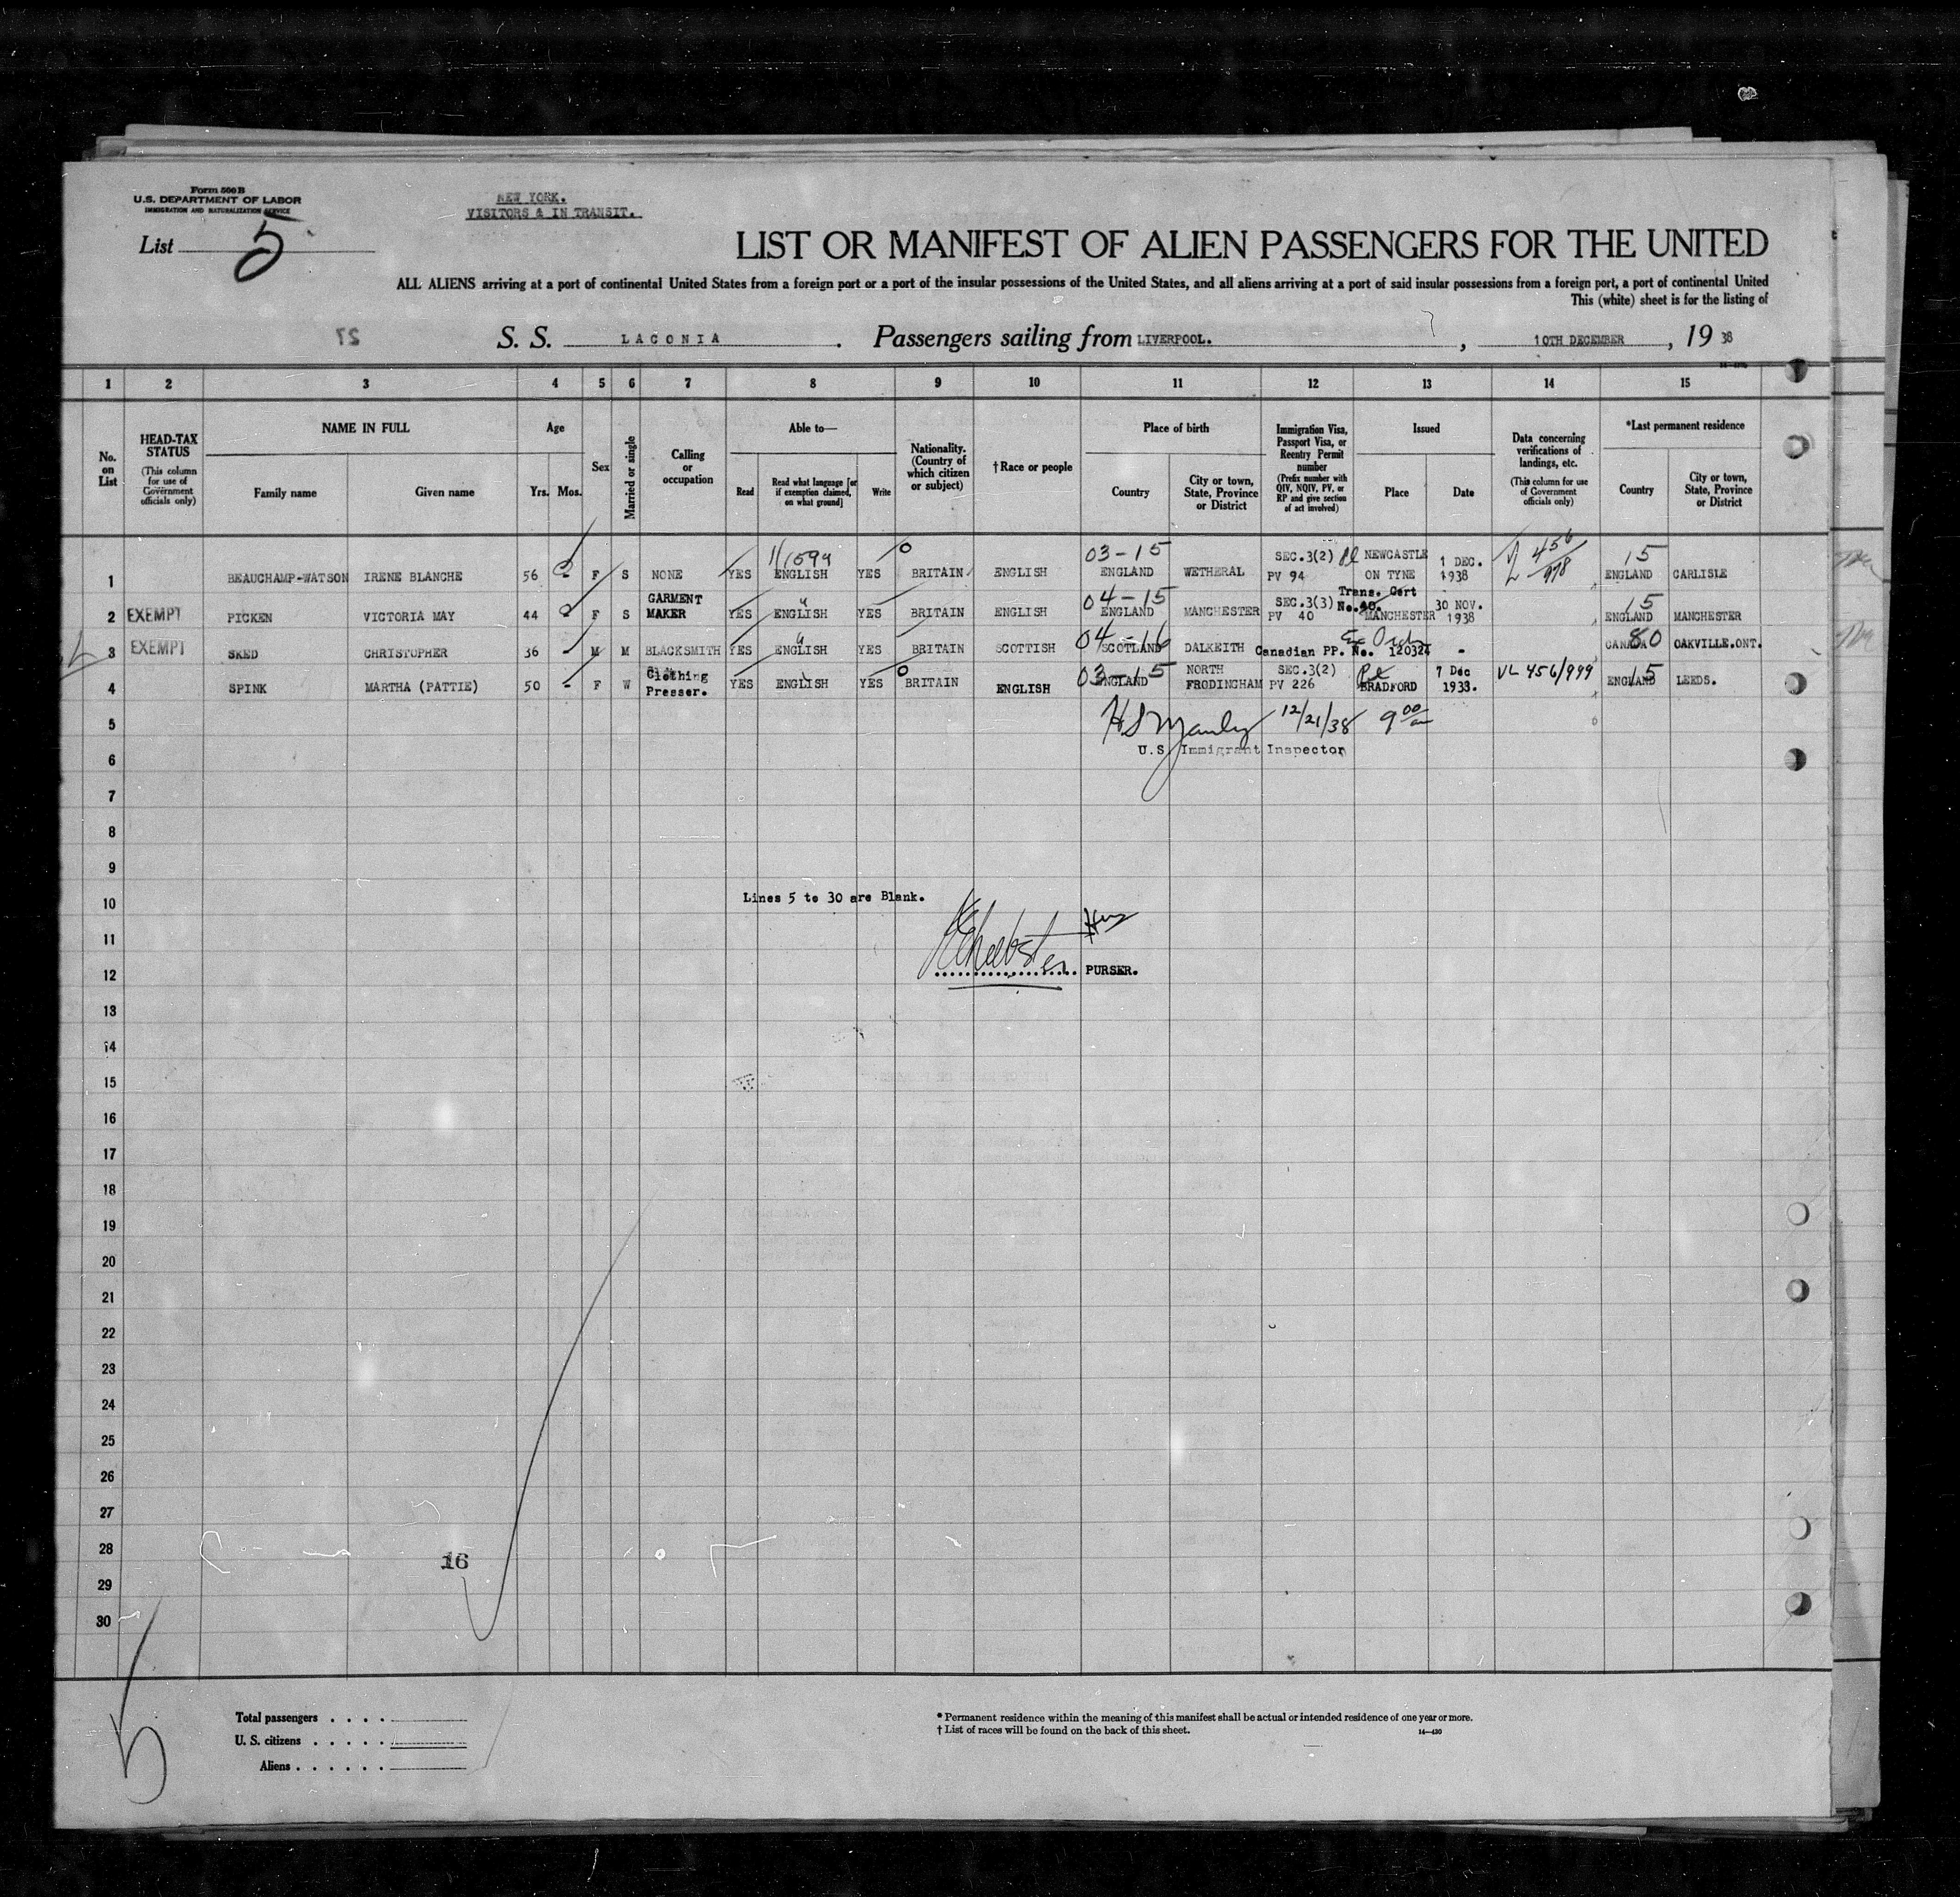 Form 500 B
U.S. DEPARTMENT OF LABOR
IMMIGRATION AND NATURALIZATION SERVICE
NEW YORK.
VISITORS & IN TRANSIT.
List 5
LIST OR MANIFEST OF ALIEN PASSENGERS FOR THE UNITED
ALL ALIENS arriving at a port of continental United States from a foreign port or a port of the insular possessions of the United States, and all aliens arriving at a port of said insular possessions from a foreign port, a port of continental United
This (white) sheet is for the listing of
27
S. S. LACONIA. Passengers sailing from LIVERPOOL. , 10TH DECEMBER , 19 38
1 2 3 4 5 6 7 8 9 10 11 12 13 14 15
No. on List
HEAD-TAX STATUS
(This column for use of Government officials only)
NAME IN FULL
Family name Given name
Age
Yrs. Mos.
Sex
Married or single
Calling or occupation
Able to—
Read
Read what language [or if exemption claimed, on what ground]
Write
Nationality. (Country of which citizen or subject)
†Race or people
Place of birth
Country
City or town, State, Province or District
Immigration Visa, Passport Visa, or Reentry Permit number
(Prefix number with QIV, NQIV, PV, or RP and give section of act involved)
Issued
Place Date
Data concerning verifications of landings, etc.
(This column for use of Government officials only)
*Last permanent residence
Country
City or town, State, Province or District
11599 0 03-15 SEC.3(2) NEWCASTLE 1 DEC. 456 15
1 BEAUCHAMP-WATSON IRENE BLANCHE 56 - F S NONE YES ENGLISH YES BRITAIN ENGLISH ENGLAND WETHERAL PV 94 ON TYNE 1938 978 ENGLAND CARLISLE
GARMENT 04-15 SEC.3(3) Trans. Cert No. 30 NOV. 15
2 EXEMPT PICKEN VICTORIA MAY 44 - F S MAKER YES ENGLISH YES BRITAIN ENGLISH ENGLAND MANCHESTER PV 40 MANCHESTER 1938 ENGLAND MANCHESTER
04-16 80
3 EXEMPT SKED CHRISTOPHER 36 M M BLACKSMITH YES ENGLISH YES BRITAIN SCOTTISH SCOTLAND DALKEITH Canadian PP. No. 120324 - CANADA OAKVILLE.ONT.
Clothing 0 03-15 NORTH SEC.3(2) 7 Dec VL 456/999 15
4 SPINK MARTHA (PATTIE) 50 - F W Presser. YES ENGLISH YES BRITAIN ENGLISH ENGLAND FRODINGHAM PV 226 BRADFORD 1938. ENGLAND LEEDS.
5 12/21/38 9 00 am
U.S. Immigrant Inspector
6
7
8
9
Lines 5 to 30 are Blank.
10
11
12 PURSER.
13
14
15
16
17
18
19
20
21
22
23
24
25
26
27
28
16
29
30
5
Total passengers . . . .
U. S. citizens . . . . .
Aliens . . . . . .
* Permanent residence within the meaning of this manifest shall be actual or intended residence of one year or more.
† List of races will be found on the back of this sheet.
14—430